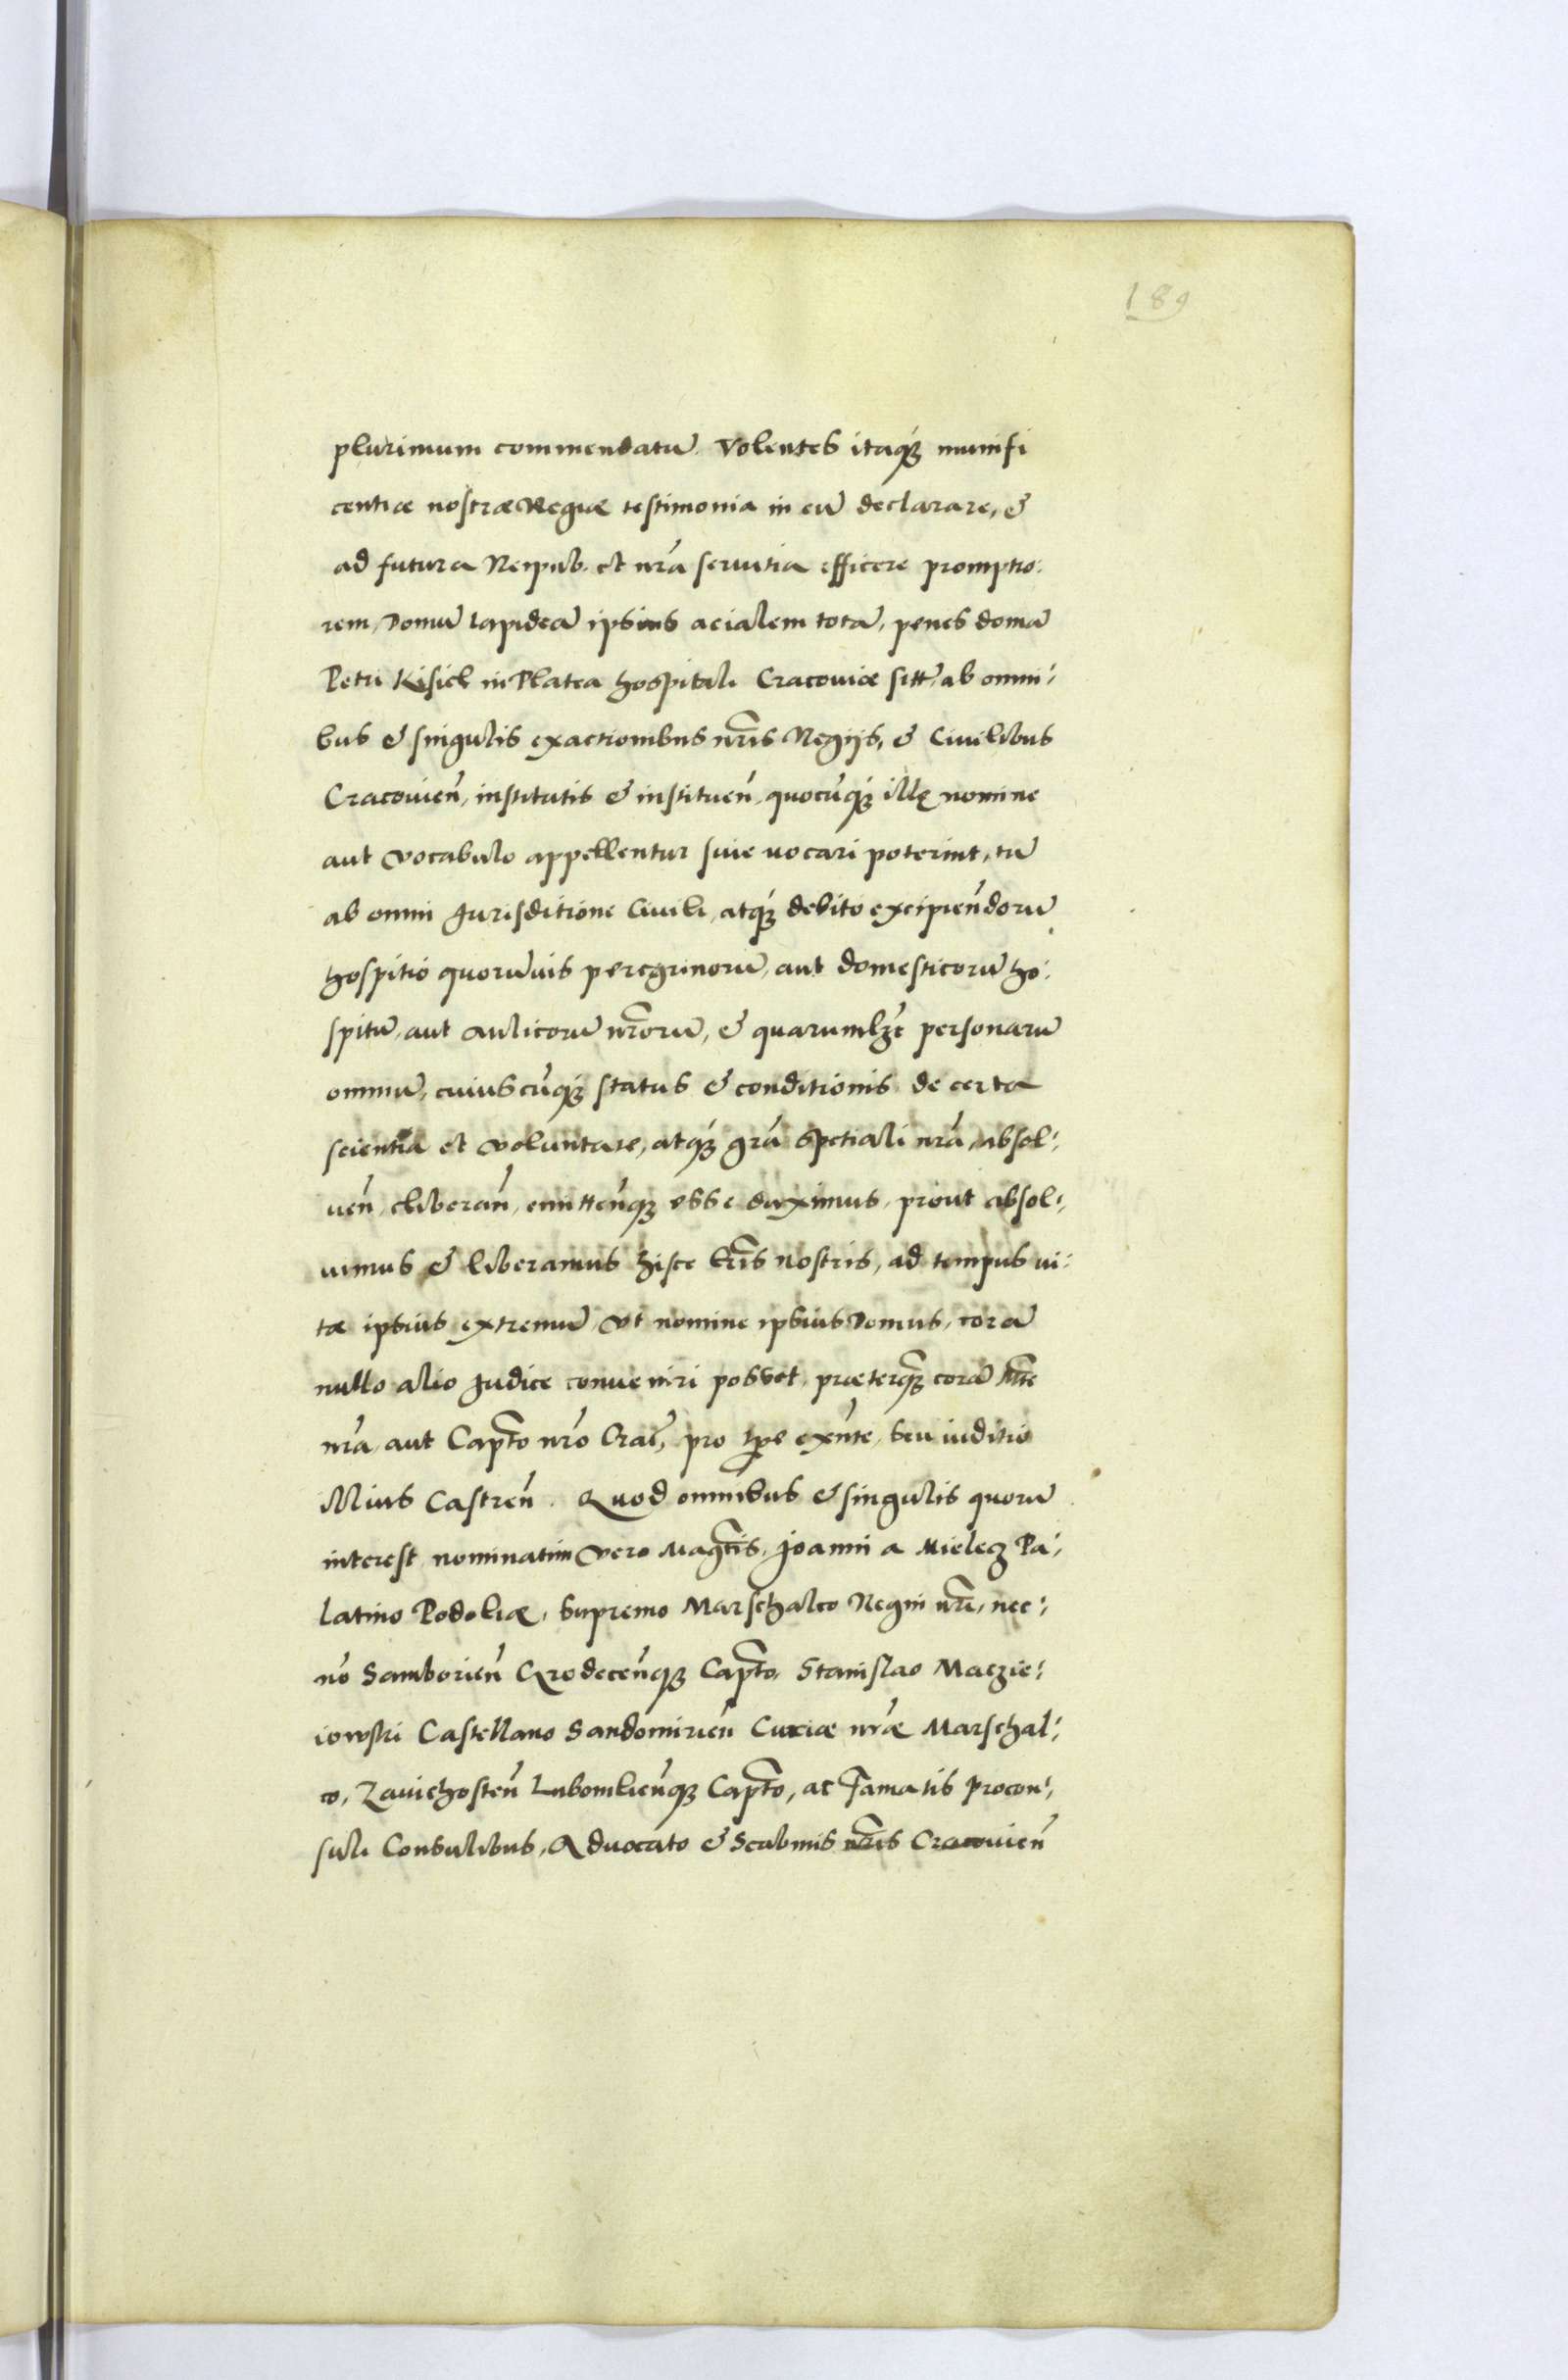 189
plurimum commendatū. Volentes itaqꝫ munifi
centiæ nostræ Regiæ testimonia in eū declarare, &
ad futura Reipub. et nr̃a seruitia efficere promptio:
rem, Domū lapideā ipsius acialem totā, penes domū
Petri Kisich in Platea hospitali Cracouiæ sitt̃, ab omni:
bus & singulis exactionibus nr̃is Regijs, & Ciuilibus
Cracouieñ, institutis & institueñ, quocūqꝫ illę nomine
aut vocabulo appellentur siue uocari poterint, tū
ab omni Jurisditione Ciuili, atqꝫ debito excipiendorū
hospitio quorūuis peregrinorū, aut domesticorū ho:
spitū, aut aulicorū nr̃orū, & quarumlꝫt personarū
omniū, cuiuscūqꝫ status & conditionis de certa
scientia et voluntate, atqꝫ gr̃a spetiali nr̃a, absol:
ueñ, eliberañ, emitteñqꝫ esse duximus, prout absol:
uimus & liberamus hisce lr̃is nostris, ad tempus ui:
tæ ipsius extremū, Vt nomine ipsius Domus, corā
nullo alio Judice conueniri posset, præterqꝫ corā Mte
nr̃a, aut Capto nr̃o Crac̃, pro tp̃e exñte, seu iuditio
illius Castreñ. Quod omnibus & singulis quorū
interest, nominatim vero Magcis, Joanni a Mielecz Pa:
latino Podoliæ, Supremo Marschalco Regni nr̃i, nec:
nō Samborieñ Grodeceñqꝫ Capto, Stanislao Maczie:
iowski Castellano Sandomirieñ Curiæ nr̃æ Marschal:
co, Zauichosteñ Lubomlieñqꝫ Capto, ac Famatis Procon:
suli Consulibus, Aduocato & Scabinis nr̃is Cracouieñ